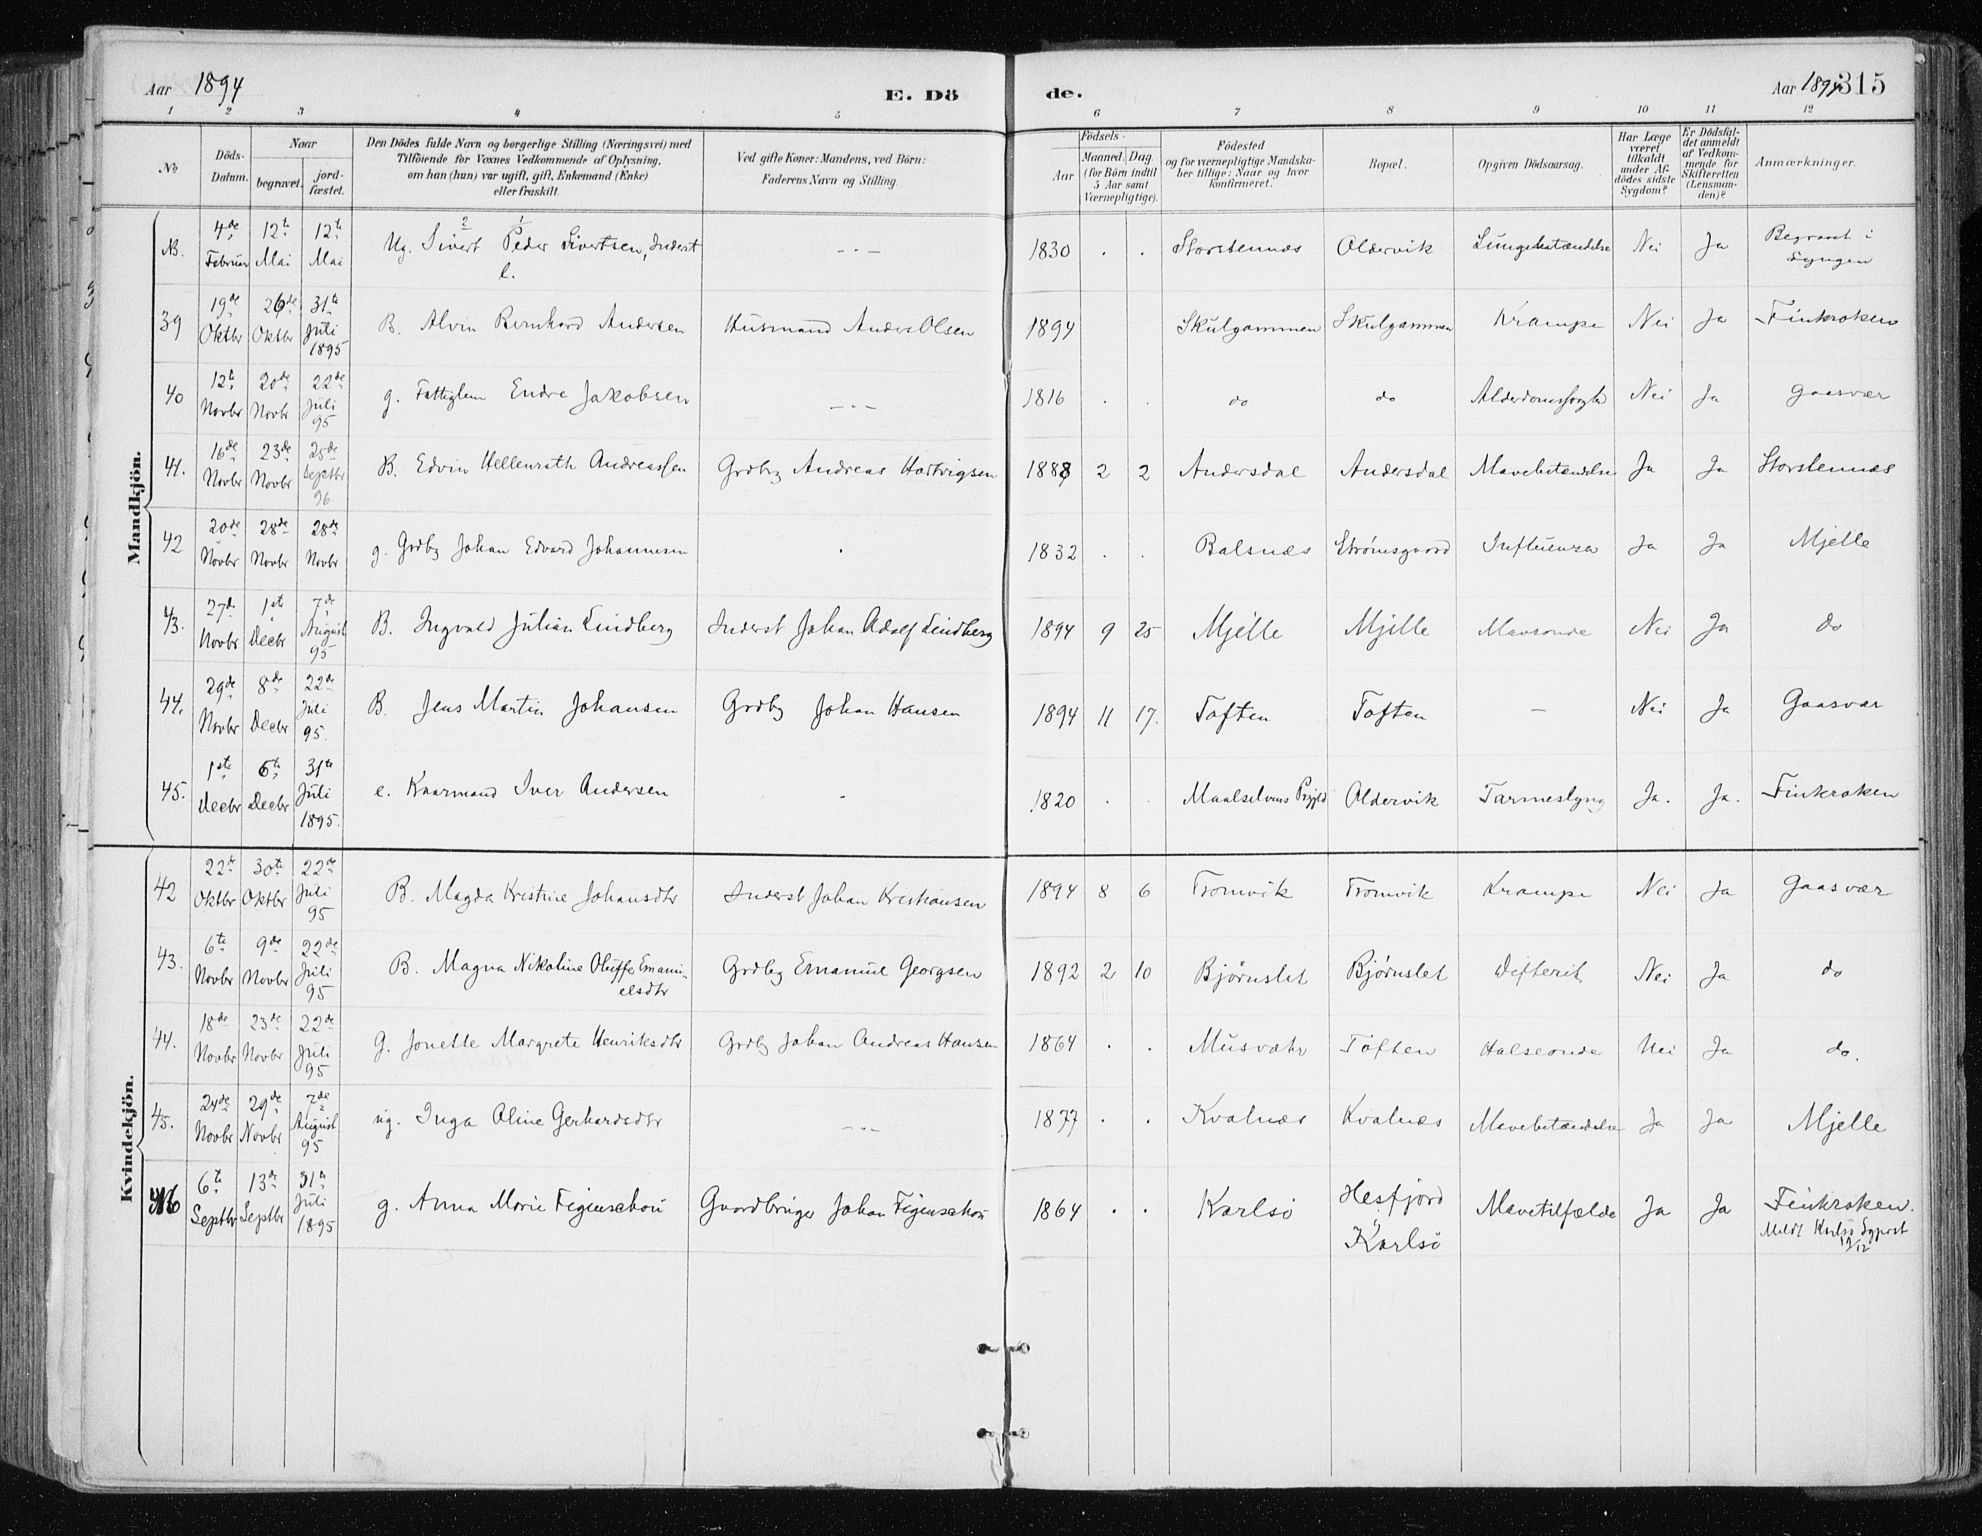 Aar 1894 E. Dö de. Aar 1894 315
1 2 3 4 5 6 7 8 9 10 11 12
No
Döds-Datum.
Naar
begravet.
jord-fæstet.
Den Dödes fulde Navn og borgerlige Stilling (Næringsvei) med
Tilföiende for Voxnes Vedkommende af Oplysning,
om han (hun) var ugift, gift, Enkemand (Enke)
eller fraskilt.
Ved gifte Koner: Mandens, ved Börn:
Faderens Navn og Stilling.
Födsels-
Aar
Maaned. Dag.
(for Börn indtil
5 Aar samt
Værnepligtige).
Födested
og for værnepligtige Mandska-
ber tillige: Naar og hvor
konfirmeret.
Bopæl.
Opgiven Dödsaarsag.
Har Læge
været
tilkaldt
under Af-
dödes sidste
Sygdom?
Er Dödsfal-
det anmeldt
af Vedkom-
mende for
Skifteretten
(Lensman-
den)?
Anmærkninger.
Mandkjön.
NB. 4de Februar 12te Mai 12te Mai Ug. Sivert 2 Peder 1 Sivertsen, Inderst l. -"- 1830 . . Storstennæs Oldervik Lungebetændelse Nei Ja Begravet i Lyngen
39 19de Oktbr 26de Oktbr 31te Juli 1895 B. Alvin Bernhard Andersen Husmand Anders Olsen 1894 Skulgammen Skulgammen Krampe Nei Ja Finkroken
40 12te Novbr 20de Novbr 22de Juli 95 g. Fattiglem Endre Jakobsen -"- 1816 . . do do Alderdomssvaghd Nei Ja Gaasvær
41. 16de Novbr 23de Novbr 25de Septbr 96 B. Edvin Hellenrath Andreassen Grdbg Andreas Hartvigsen 1888 2 2 Andersdal Andersdal Mavebetændelse Ja Ja Storstennæs
42 20de Novbr 28de Novbr 28de Novbr g. Grdbg Johan Edvard Johannesen . 1832 . . Balsnæs Strømsgaard Influenza Ja Ja Mjelle
43. 27de Novbr 1ste Decbr 7de August 95 B. Ingvald Julian Lindberg Inderst Johan Adolf Lindberg 1894 9 25 Mjelle Mjelle Mavsonde Nei Ja do
44. 29de Novbr 8de Decbr 22de Juli 95. B. Jens Martin Johansen Grdbg Johan Hansen 1894 11 17. Toften Toften — Nei Ja Gaasvær
45. 1ste Decbr 6te Decbr 31te Juli 1895. e. Kaarmand Iver Andersen . 1820 . . Maalselvens Prgjld Oldervik Tarmeslyng Ja. Ja. Finkroken
Kvindekjön.
42 22de Oktbr 30te Oktbr 22de Juli 95 B. Magda Kristine Johansdtr Inderst Johan Kristiansen 1894 8 6 Tromvik Tromvik Krampe Nei Ja Gaasvær
43. 6te Novbr 9de Novbr 22de Juli 95 B. Magna Nikoline Oluffe Emanu-
elsdtr Grdbg Emanuel Georgsen 1892 2 10 Bjørnslet Bjørnslet Difterit Nei Ja do
44. 18de Novbr 23de Novbr 22de Juli 95 g. Jonette Margrete Henriksdtr Grdbg Johan Andreas Hansen 1864 . . Musvær Toften Halseonde Nei Ja do.
45. 24de Novbr 29de Novbr 7de August 95 ug. Inga Oline Gerhardsdtr -"- 1877 . . Kvalnæs Kvalnæs Mavebetændelse Ja Ja Mjelle
46 6te Septbr 13de Septbr 31te Juli 1895 g. Anna Marie Figenschou Gaardbruger Johan Figenschou 1864 . . Karlsö Hesfjord i Karlsö Mavetilfælde Ja Ja Finkroken.
Meldt Karlsö Sgprst 19/12